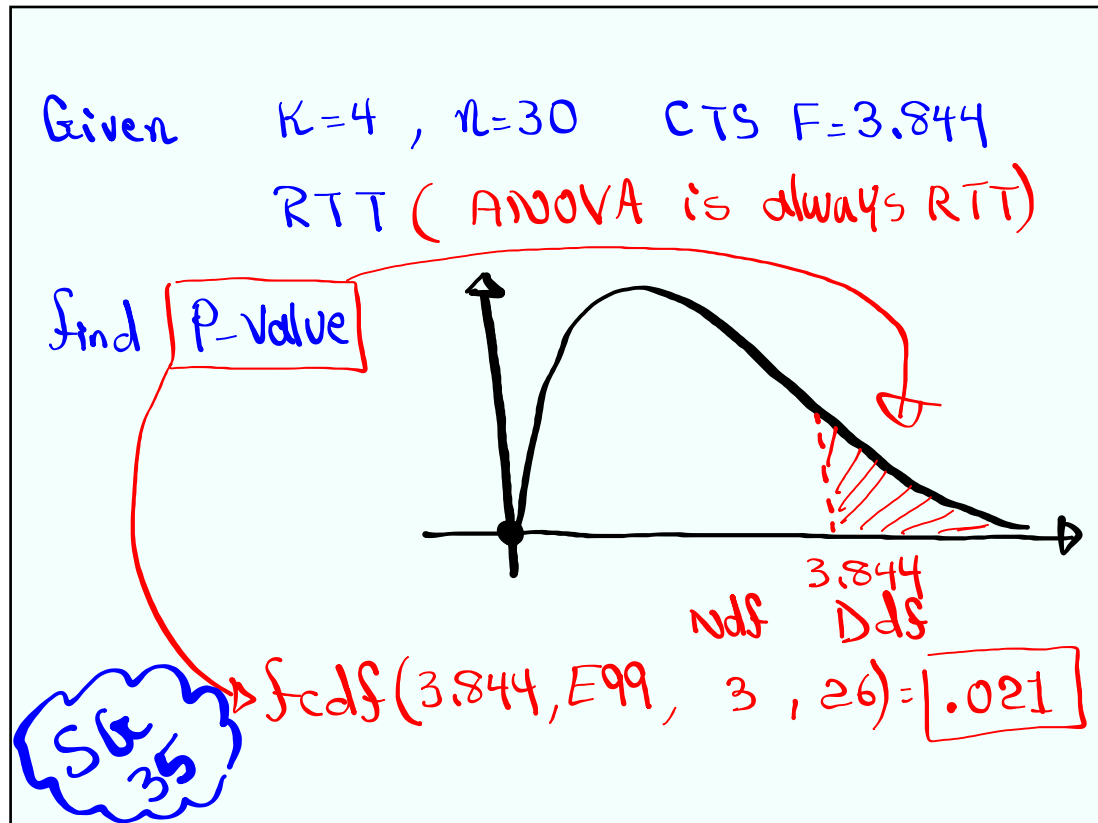 Given K=4 , n=30 CTS F=3.844
RTT ( ANOVA is always RTT)
find P-Value
3.844
Ndf Ddf
fcdf(3.844,E99, 3 , 26)= .021
SG
35